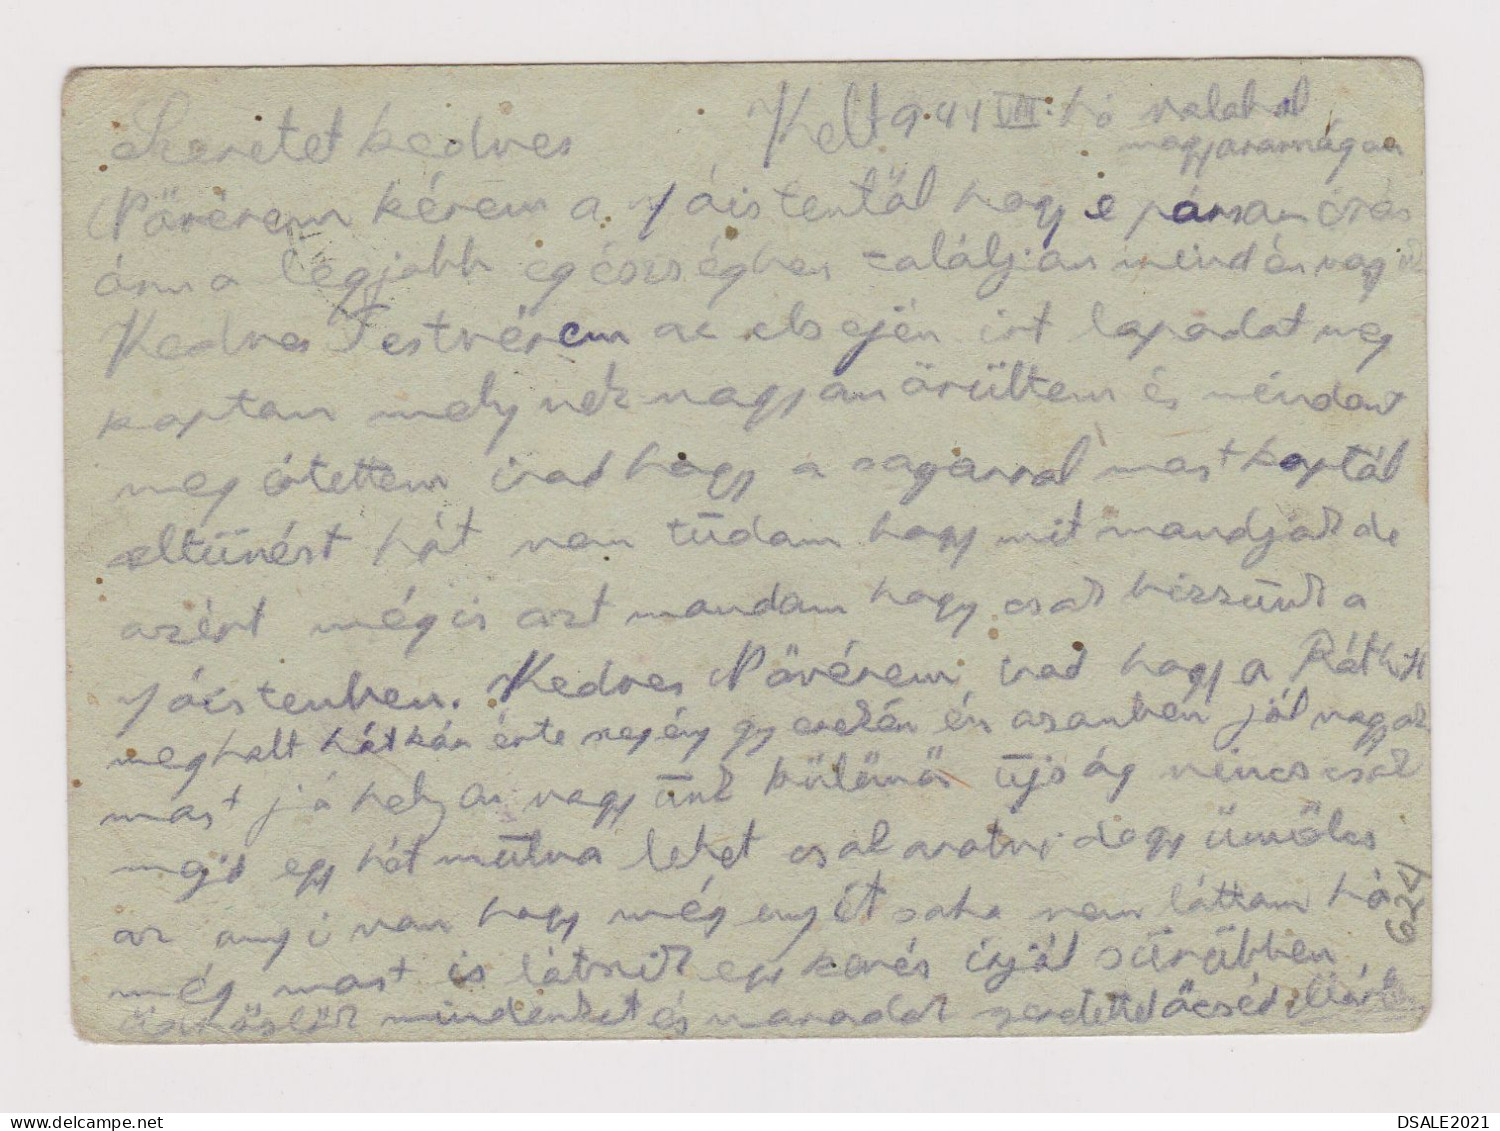 Szeretet kedves Kelt 944 VIII. hó valahol
magyarországon
Nővérem kérem a jóistentől hogy e pár sor írás
ám a legjobb egészségben találjon mindányagiuk
Kedves Testvérem az elsején irt lapodat meg
kaptam melynek nagyon örültem és mindent
meg értettem irod hogy a sogorrol most kaptál
eltünést hát nem tudom hogy mit mondjak de
azért mégis azt mondom hogy csak bizzunk a
jóistenben. Kedves Nővérem irod hogy a Ráth
meghalt hát kár érte szegény gyerekén én azonben jól vagyok
most jó helyen vagyunk külömös ujság nincs csak
majd egy hét mulva lehet csak aratni dogy ümölcs
az anyi van hogy még enyit soha nem láttam há
még most is látszik egy kevés irjál sürübben
üdvözlök mindenket és maradok szeretettel öcséd
624
DELCAMPE.NET
DSALE2021